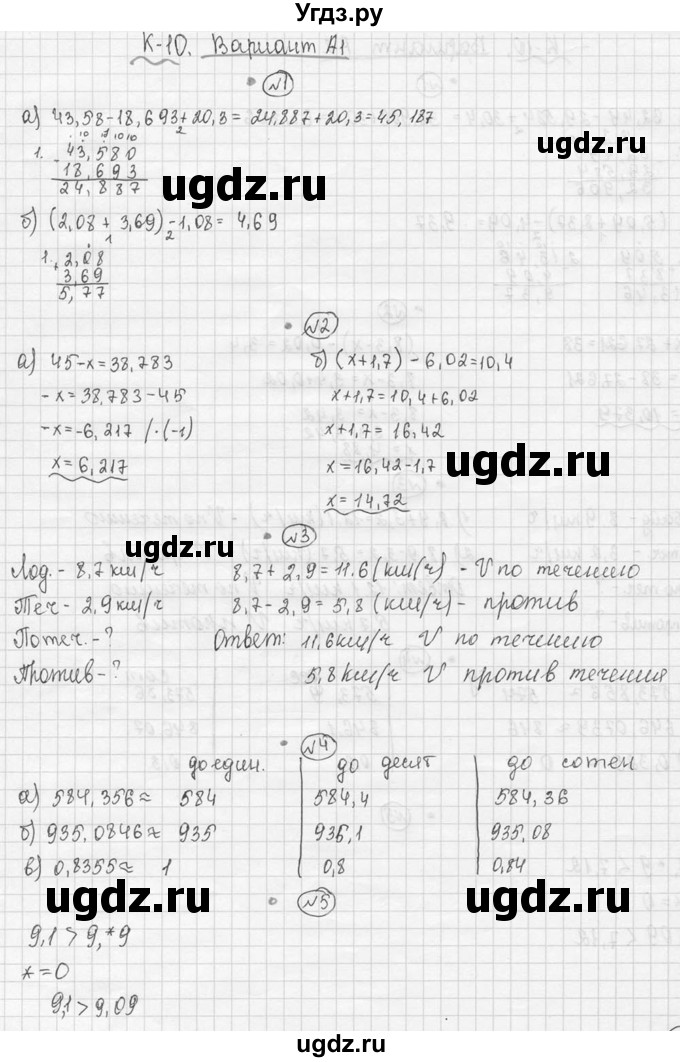 Угдз.ру
К-10. Вариант А1
№1
а) 43,58-18,693+20,3= 24,887+20,3=45,187
2
10 10 10
1. - 43,580
18,693
24,887
б) (2,08 + 3,69)-1,08= 4,69
1 2
1. + 2,08
3,69
5,77
№2
а) 45-x=38,783
-x=38,783-45
-x=-6,217 /·(-1)
x=6,217
б) (x+1,7)-6,02=10,4
x+1,7=10,4+6,02
x+1,7=16,42
x=16,42-1,7
x=14,72
№3
Лод.- 8,7 км/ч 8,7+2,9=11.6(км/ч) - V по течению
Теч- 2,9 км/ч 8,7-2,9=5,8 (км/ч)- против
По теч.-? Ответ: 11,6км/ч V по течению
Против-? 5,8 км/ч V против течения
№4
до един. до десят до сотен
а) 584,356≈ 584 584,4 584,36
б) 935,0846≈ 935 935,1 935,08
в) 0,8355≈ 1 0,8 0,84
№5
9,1 > 9,*9
*=0
9,1>9,09
ugdz.ru
ugdz.ru
ugdz.ru
ugdz.ru
ugdz.ru
ugdz.ru
ugdz.ru
ugdz.ru
ugdz.ru